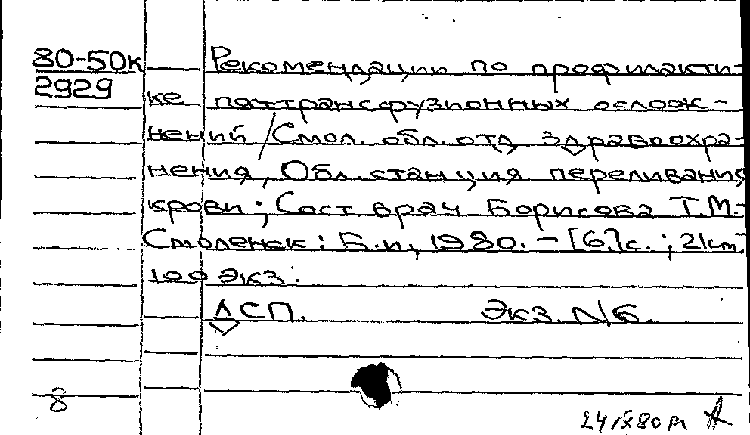 80-50к Рекомендации по профилакти-
2929
ке посттрансфузионных ослож-
нений / Смол. обл. отд. здравоохра-
нения, Обл. станция переливания
крови; Сост. врач Борисова Т.М.-
Смоленск: Б.и., 1980. - [6.]с.; 21см.
100 экз.
ДСП. Экз. N6.
8
24/X80